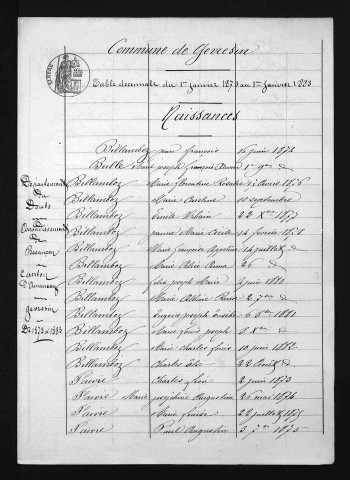 Commune de Gevresin
Table décennale du 1er janvier 1873 au 1er janvier 1883
Naissances
Département
du
Doubs
Arrondissement
de
Besançon
Canton
d'Amancey
Gevresin
De 1873 à 1883
Billamboz jean françois 16 juin 1874
Bulle Marie joseph françois 1er 9bre d
Billamboz Marie florentine 17 Avril 1876
Billamboz Marie Caroline 10 septembre
Billamboz Emile 22 Xbre 1877
Billamboz jeanne Marie Cécile 14 février 1878
Billamboz Marie françoise 14 juillet d
Billamboz Marie Anna 26 d
Billamboz félix joseph Marie 4 juin 1880
Billamboz Marie 2 7bre d
Billamboz Eugène joseph 6 1881
Billamboz Marie Louis joseph 8 d
Billamboz Marie Charles Louis 10 juin 1882
Billamboz Charles 22 Août d
faivre Charles Léon 2 juin 1873
faivre Marie joséphine Augustine 26 mai 1874
faivre Marie Louise 22 juillet 1875
faivre Paul Augustin 3 7bre 1875